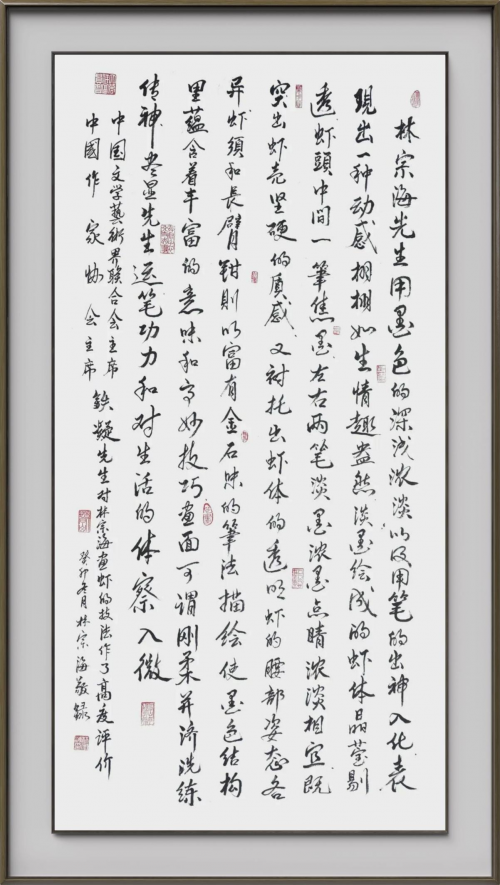 林宗海先生用墨色的深浅浓淡以及用笔的出神入化表
现出一种动感栩栩如生情趣盎然淡墨绘成的虾体晶莹剔
透虾頭中间一筆焦墨左右两笔淡墨浓墨点睛浓淡相宜既
突出虾壳坚硬的质感又衬托出虾体的透明虾的腰部姿态各
异虾须和長臂钳则以富有金石味的筆法描绘使墨色结构
里蕴含着丰富的意味和高妙技巧画面可谓刚柔并济洗练
传神尽显先生运笔功力和对生活的体察入微
中国文学藝術界联合会主席
中國作家协会主席
鉄凝先生对林宗海画虾的技法作了高度评价
癸卯冬月林宗海敬録